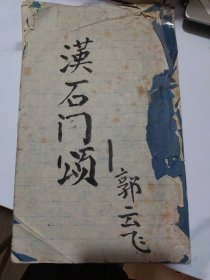 漢石门颂
郭云飞